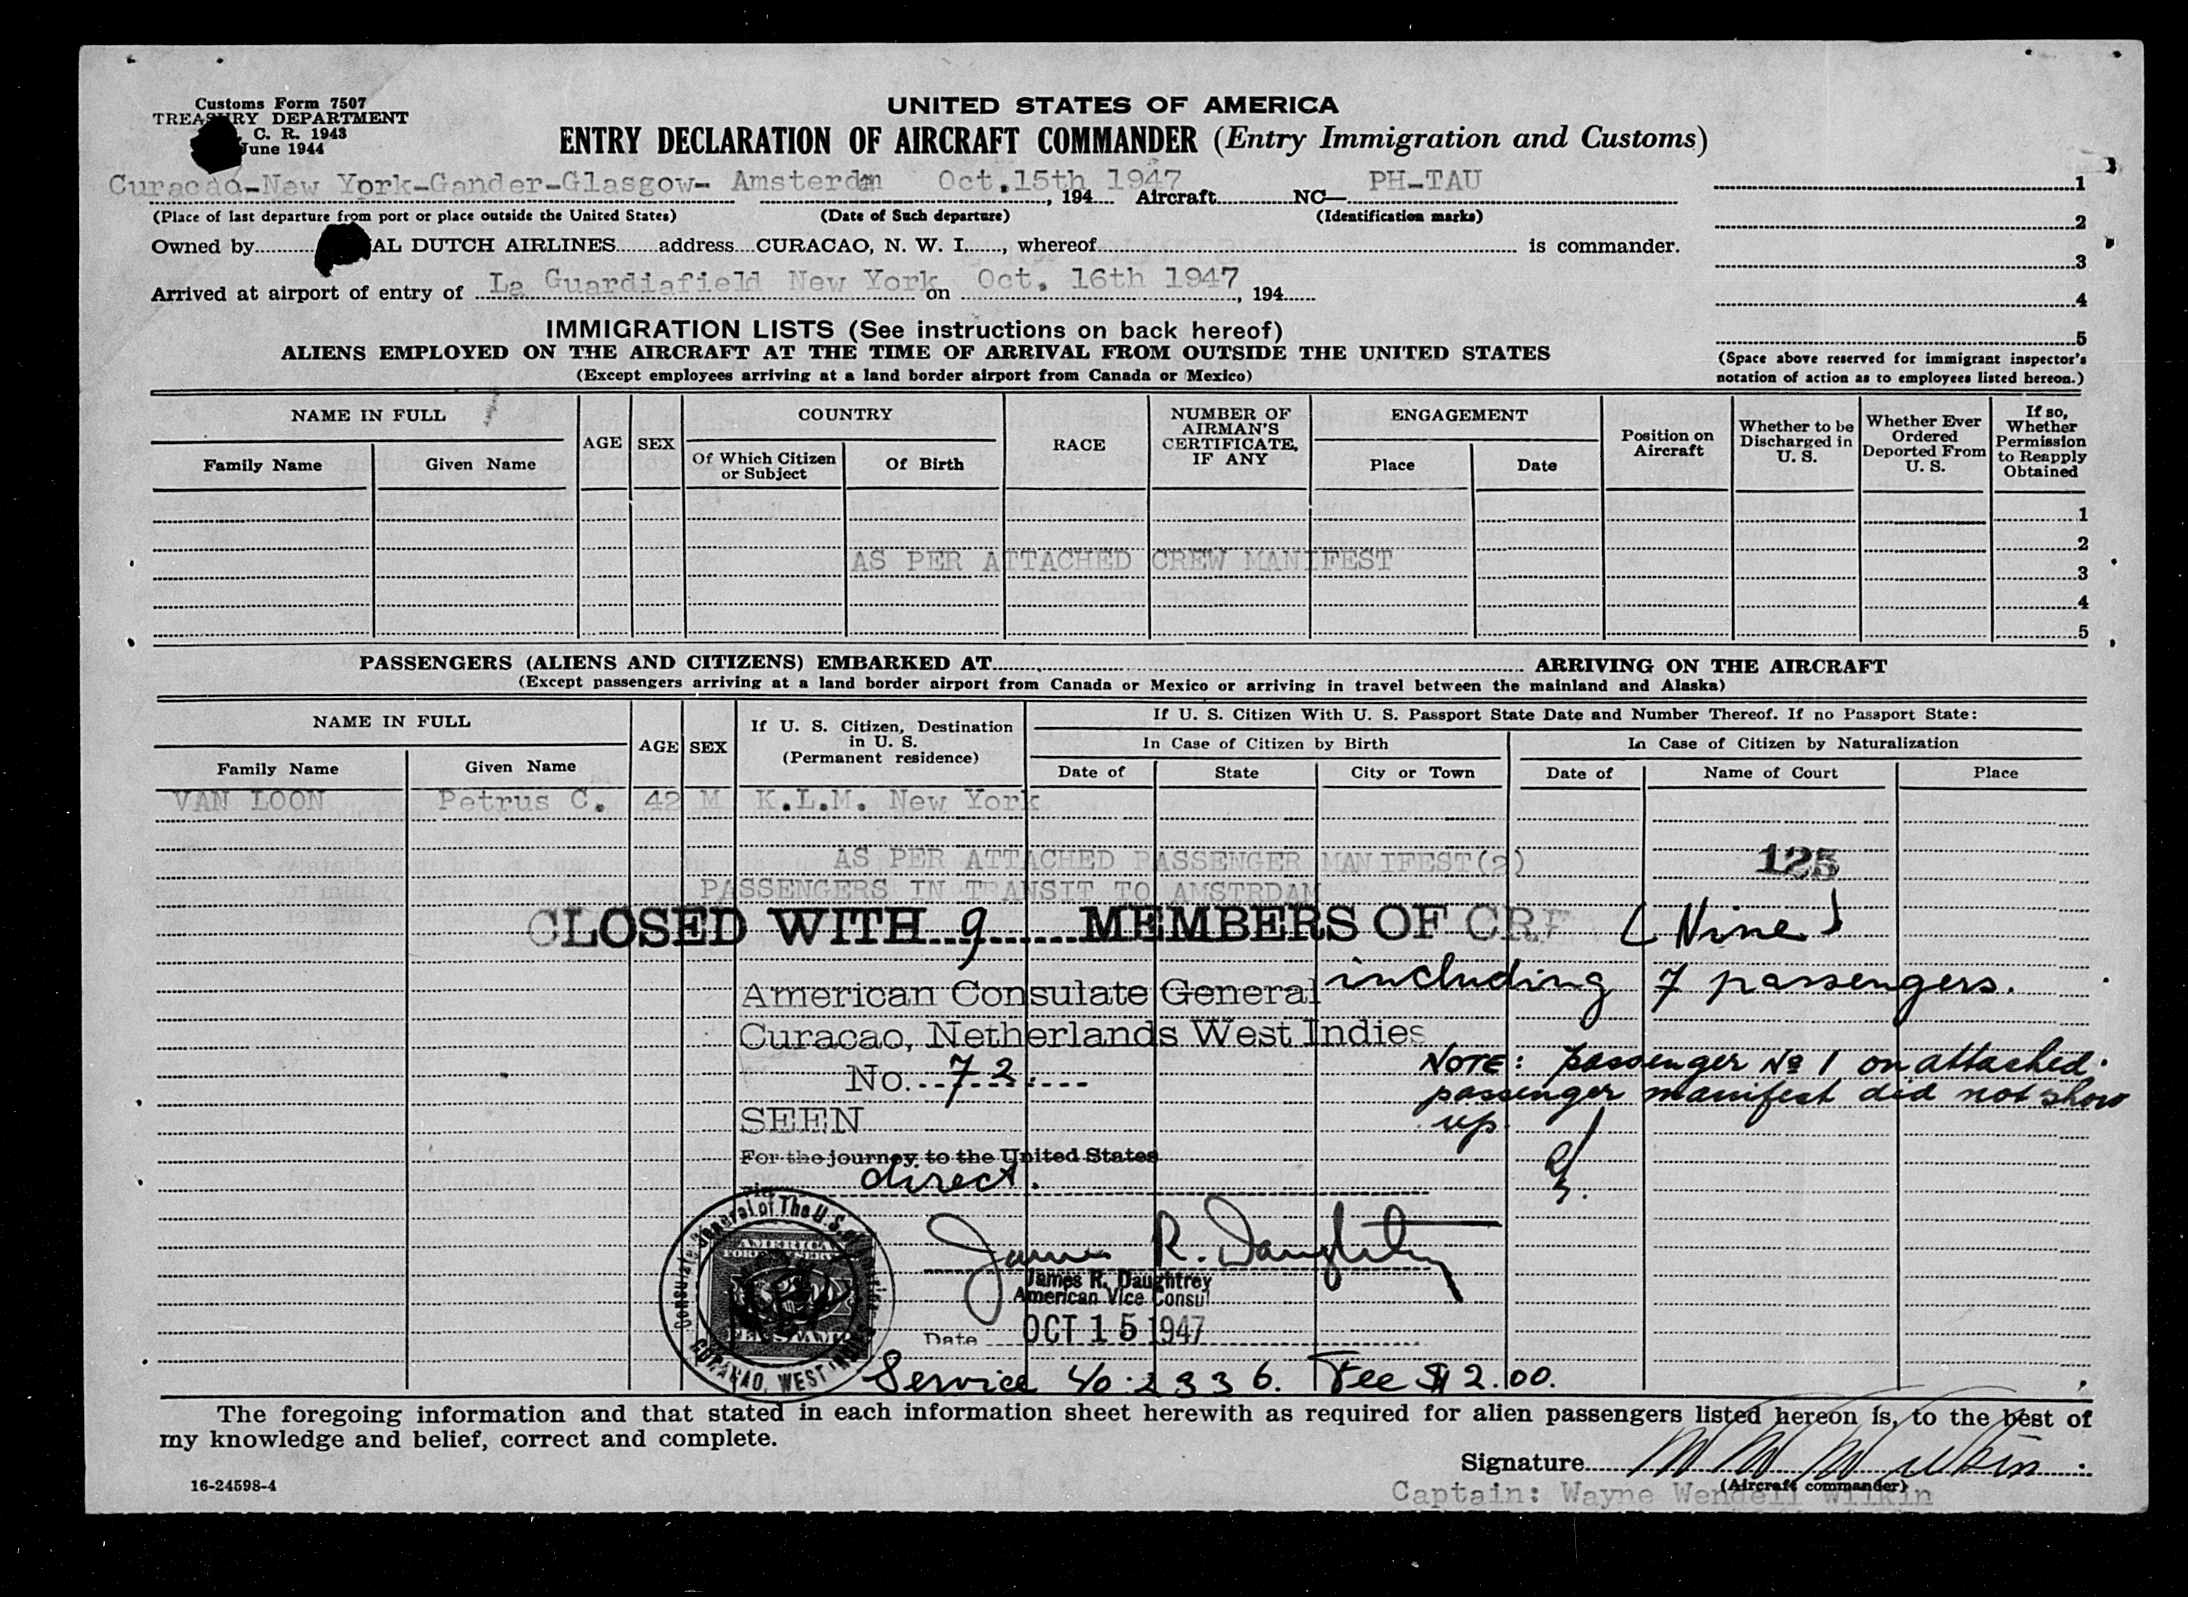 Customs Form 7507
TREASURY DEPARTMENT
C. R. 1943
June 1944
UNITED STATES OF AMERICA
ENTRY DECLARATION OF AIRCRAFT COMMANDER (Entry Immigration and Customs)
Curacao-New York-Gander-Glasgow- Amsterdam Oct.15th 1947, 194 Aircraft NC— PH-TAU
(Place of last departure from port or place outside the United States) (Date of Such departure) (Identification marks)
Owned by AL DUTCH AIRLINES address CURACAO, N. W. I., whereof is commander.
Arrived at airport of entry of La Guardiafield New York on Oct. 16th 1947, 194
1
2
3
4
5
(Space above reserved for immigrant inspector's
notation of action as to employees listed hereon.)
IMMIGRATION LISTS (See instructions on back hereof)
ALIENS EMPLOYED ON THE AIRCRAFT AT THE TIME OF ARRIVAL FROM OUTSIDE THE UNITED STATES
(Except employees arriving at a land border airport from Canada or Mexico)
NAME IN FULL
Family Name Given Name
AGE SEX
COUNTRY
Of Which Citizen or Subject
Of Birth
RACE
NUMBER OF AIRMAN'S CERTIFICATE, IF ANY
ENGAGEMENT
Place Date
Position on Aircraft
Whether to be Discharged in U. S.
Whether Ever Ordered Deported From U. S.
If so, Whether Permission to Reapply Obtained
1
2
AS PER ATTACHED CREW MANIFEST
3
4
5
PASSENGERS (ALIENS AND CITIZENS) EMBARKED AT ARRIVING ON THE AIRCRAFT
(Except passengers arriving at a land border airport from Canada or Mexico or arriving in travel between the mainland and Alaska)
NAME IN FULL
Family Name Given Name
AGE SEX
If U. S. Citizen, Destination in U. S. (Permanent residence)
If U. S. Citizen With U. S. Passport State Date and Number Thereof. If no Passport State:
In Case of Citizen by Birth In Case of Citizen by Naturalization
Date of State City or Town Date of Name of Court Place
VAN LOON Petrus C. 42 M K.L.M. New York
AS PER ATTACHED PASSENGER MANIFEST(2) 125
PASSENGERS IN TRANSIT TO AMSTRDAM
CLOSED WITH 9 MEMBERS OF CRE (Nine)
American Consulate General including 7 passengers.
Curacao, Netherlands West Indies
No. 72
NOTE: passenger № 1 on attached
passenger manifest did not show
up.
SEEN
For the journey to the United States
via direct.
Consulate General of The U.S. of America
CURACAO, WEST INDIES
AMERICAN
FOREIGN SERVICE
FEE STAMP
James R. Daughtrey
James R. Daughtrey
American Vice Consul
Date OCT 15 1947
Service No. 2336. Fee $2.00.
The foregoing information and that stated in each information sheet herewith as required for alien passengers listed hereon is, to the best of
my knowledge and belief, correct and complete.
Signature W W Wilkin
(Aircraft commander)
16-24598-4
Captain: Wayne Wendell Wilkin